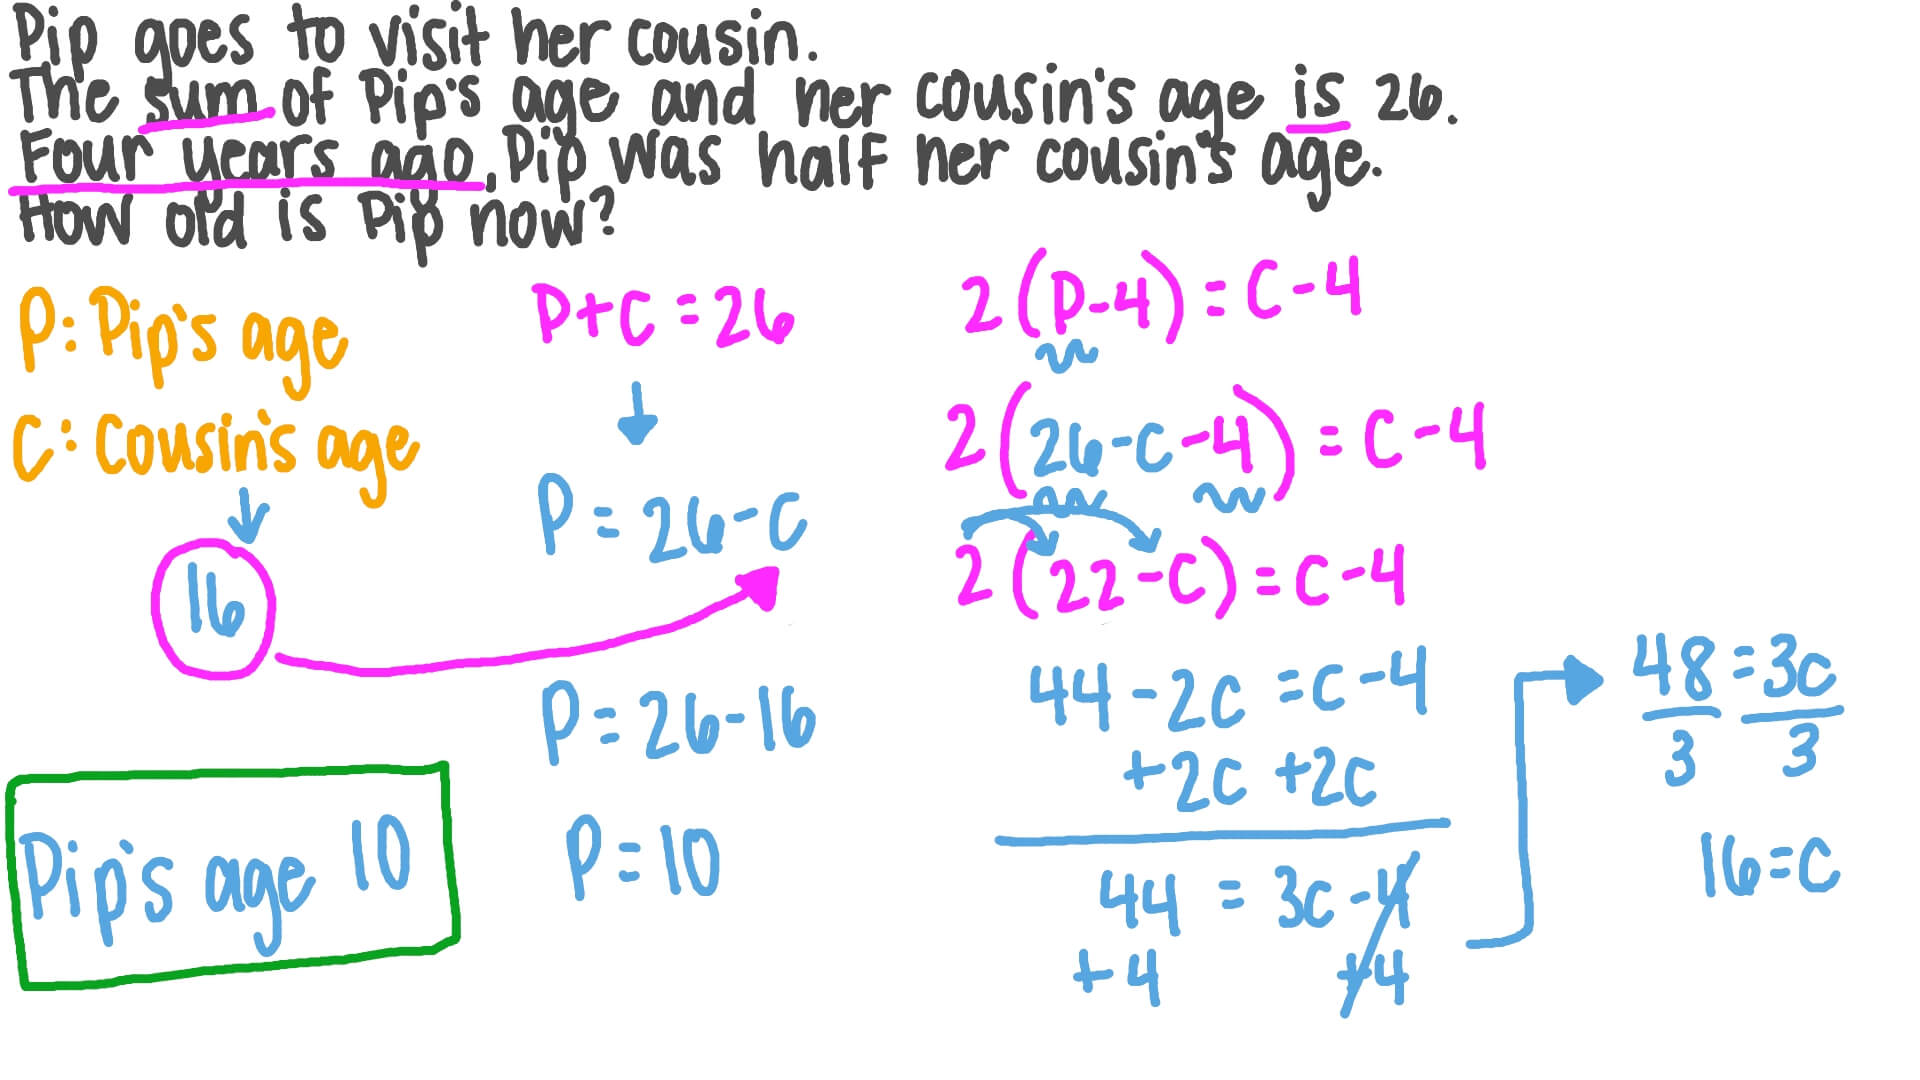 Pip goes to visit her cousin.
The sum of Pip's age and her cousin's age is 26.
Four years ago, Pip was half her cousin's age.
How old is Pip now?
P: Pip's age
C: Cousin's age
16
Pip's age 10
P+C=26
P=26-C
P=26-16
P=10
2(P-4)=C-4
2(26-C-4)=C-4
2(22-C)=C-4
44-2C=C-4
+2C +2C
44=3C-4
+4 +4
48=3C
3 3
16=C